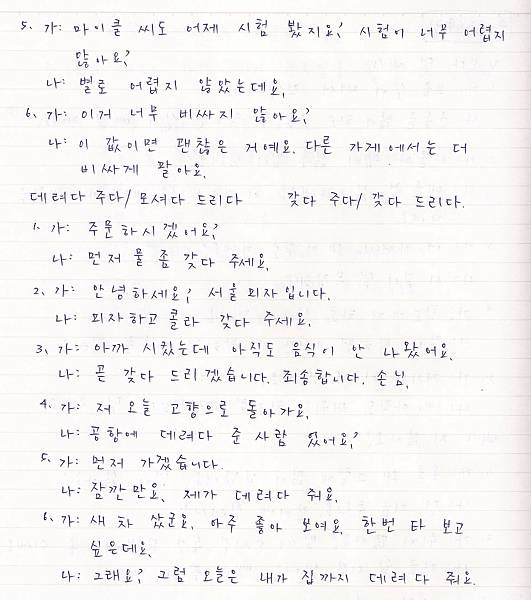 5. 가: 마이클 씨도 어제 시험 봤지요? 시험이 너무 어렵지
않아요?
나: 별로 어렵지 않았는데요.
6. 가: 이거 너무 비싸지 않아요?
나: 이 값이면 괜찮은 거예요. 다른 가게에서는 더
비싸게 팔아요.
데려다 주다/ 모셔다 드리다 갖다 주다/ 갖다 드리다.
1. 가: 주문하시겠어요?
나: 먼저 물 좀 갖다 주세요.
2. 가: 안녕하세요? 서울 피자입니다.
나: 피자하고 콜라 갖다 주세요.
3. 가: 아까 시켰는데 아직도 음식이 안 나왔어요.
나: 곧 갖다 드리겠습니다. 죄송합니다. 손님.
4. 가: 저 오늘 고향으로 돌아가요.
나: 공항에 데려다 준 사람 있어요?
5. 가: 먼저 가겠습니다.
나: 잠깐만요. 제가 데려다 줘요.
6. 가: 새 차 샀군요. 아주 좋아 보여요. 한번 타 보고
싶은데요.
나: 그래요? 그럼 오늘은 내가 집까지 데려다 줘요.